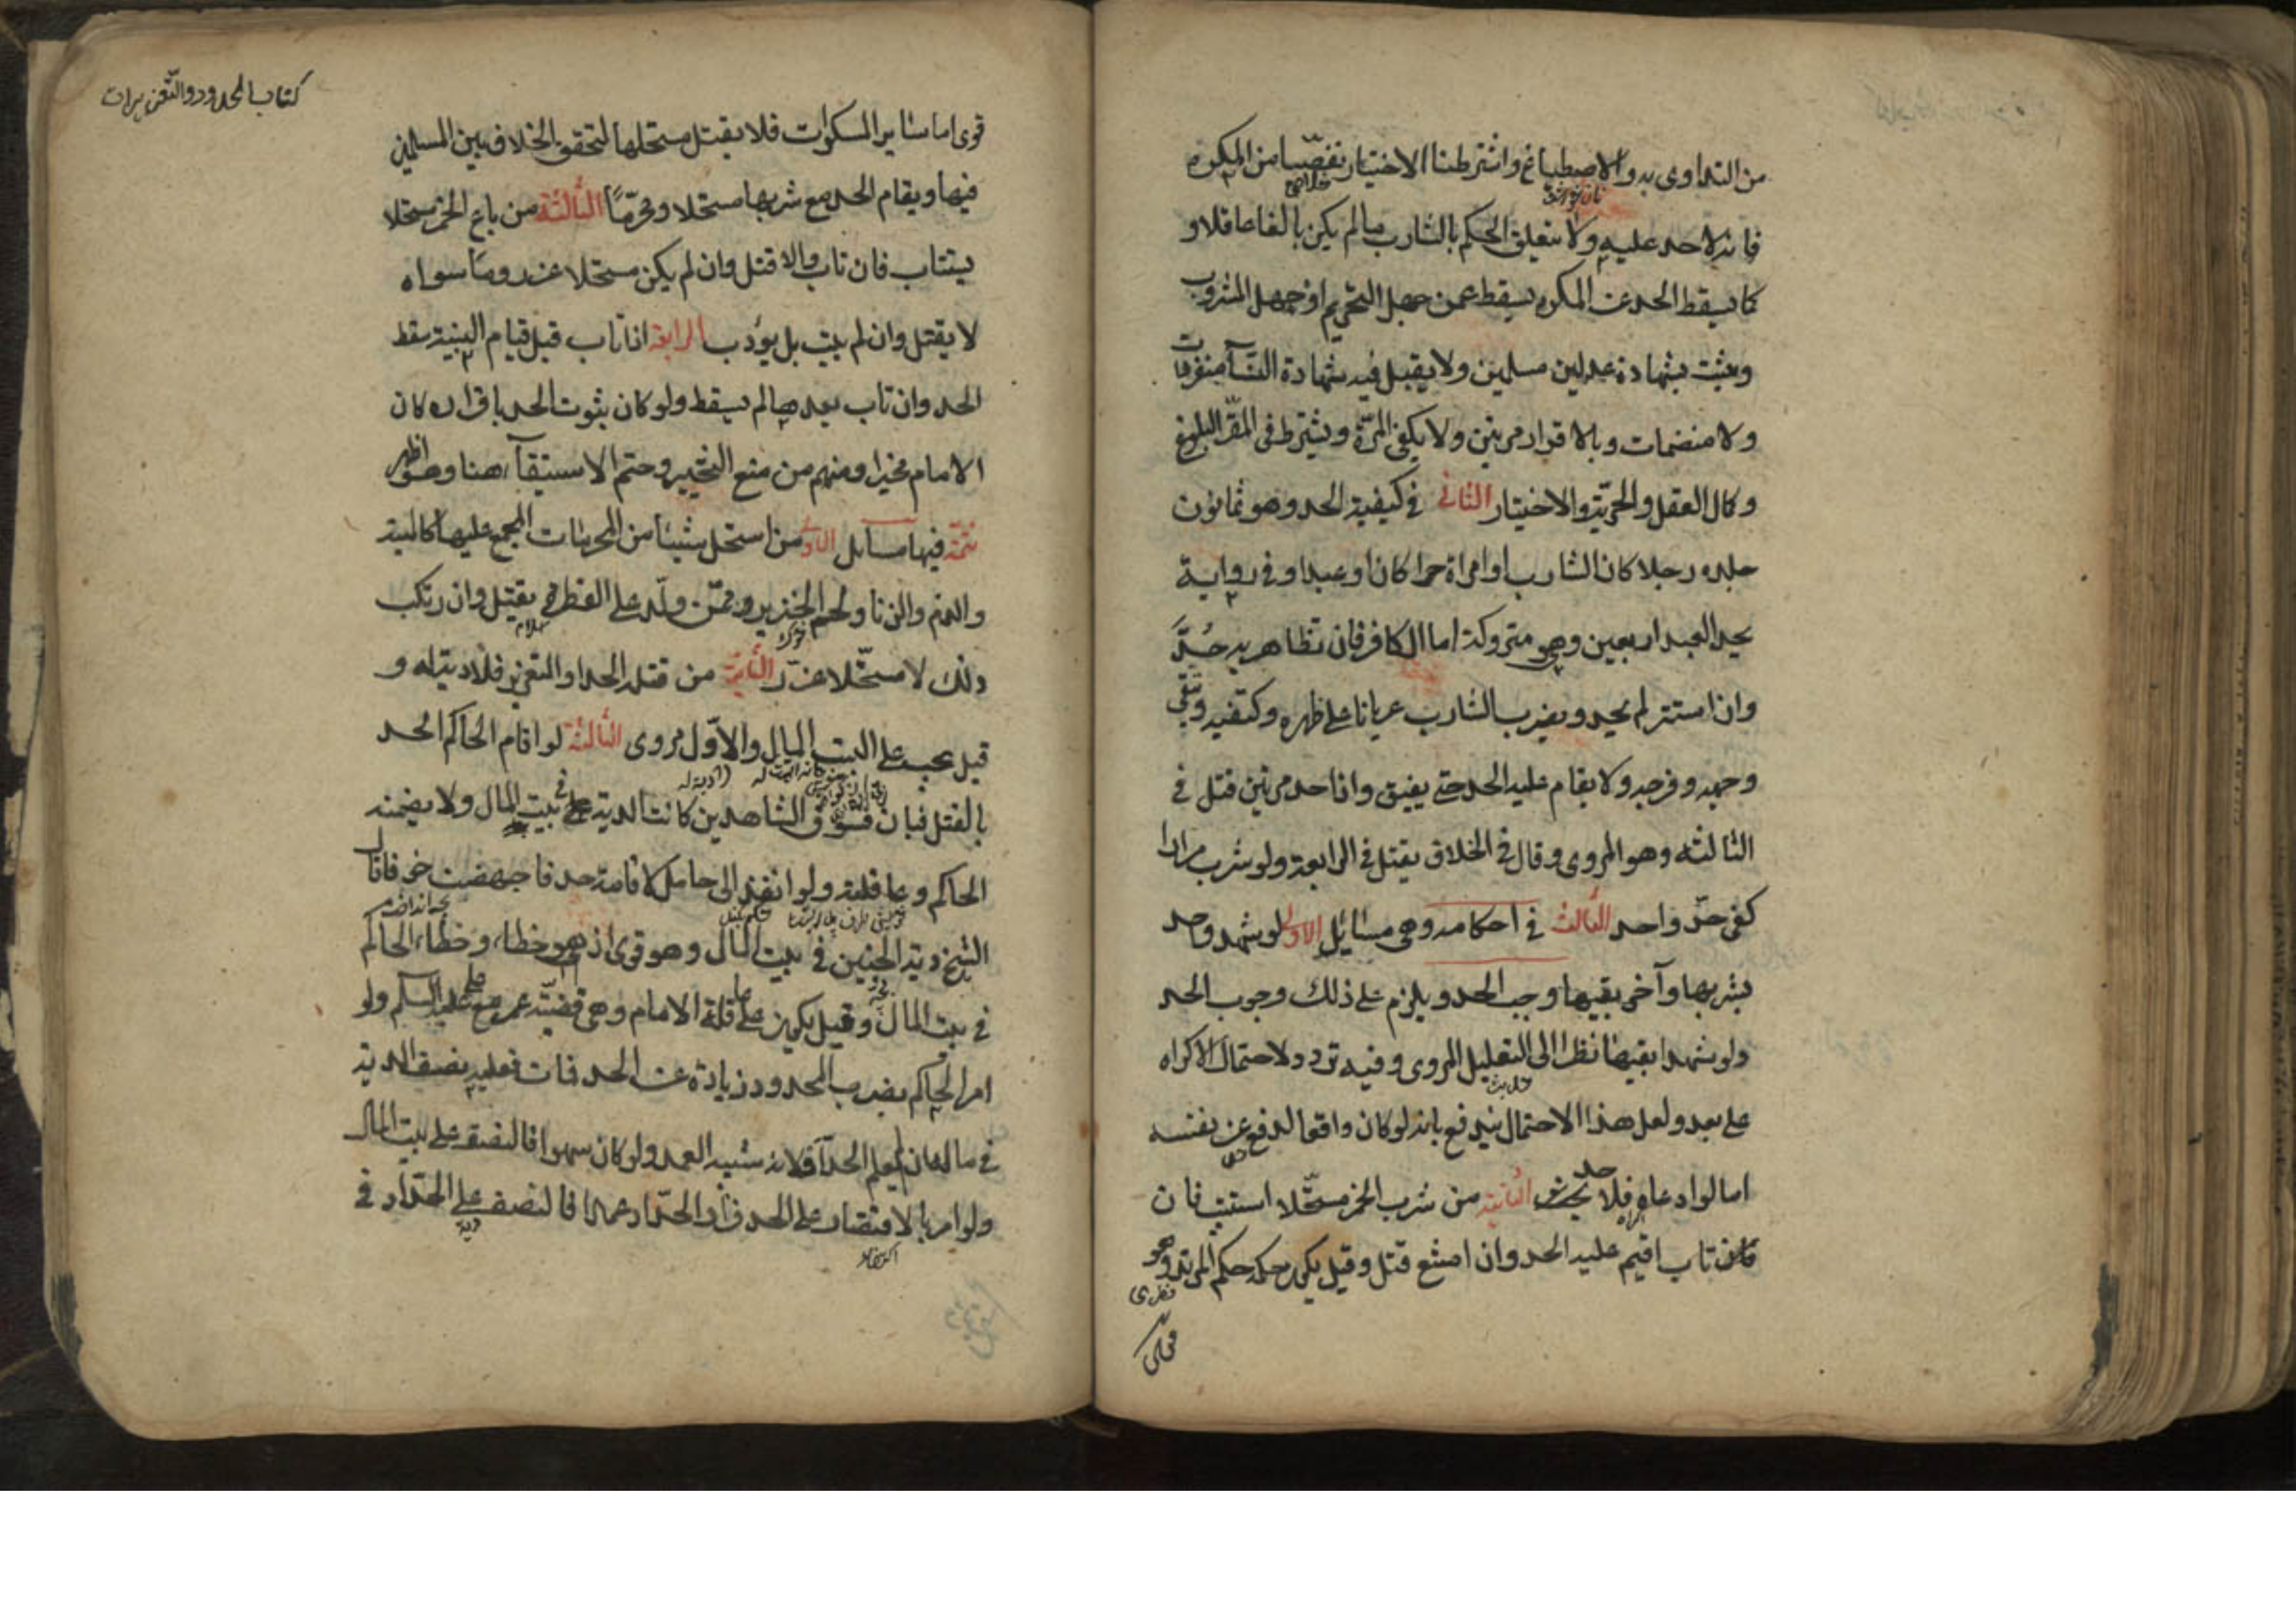 من التداوى به والاصطباغ واشترطنا الاختيار تفصيا من المكره
فانه لا حد عليه ولا يتعلق الحكم بالشارب ما لم يكن بالغا عاقلا و
كما يسقط الحد عن المكره يسقط عمن جهل التحريم او جهل المشروب
ويثبت بشهادة عدلين مسلمين ولا يقبل فيه شهادة النسآ منفردات
ولا منضمات وبالاقرار مرتين ولا يكفى المرة ويشترط فى المقر البلوغ
وكمال العقل والحرية والاختيار الثانى فى كيفية الحد وهو ثمانون
جلده رجلا كان الشارب او امراة حرا كان او عبدا وفى رواية
يحد العبد اربعين وهى متروكة اما الكافر فان تظاهر به حُدَّ
وان استتر لم يحد ويضرب الشارب عريانا على ظهره وكتفيه ويتقى
وجهه وفرجه ولا يقام عليه الحد حتى يفيق واذا حد مرتين قتل فى
الثالثه وهو المروى وقال فى الخلاف يقتل فى الرابعة ولو شرب مرارا
كفى حدّ واحد الثالث فى احكامه وهى مسائل الاولى لو شهد واحد
بشربها وآخر بقيها وجب الحد ويلزم على ذلك وجوب الحد
ولو شهدا بقيها نظرا الى التعليل المروى وفيه تردد لاحتمال الاكراه
على بعد ولعل هذا الاحتمال يندفع بانه لو كان واقعا لدفع عن نفسه
اما لو ادعاه فلا حد الثانية من شرب الخمر مستحلا استتيب فان
تاب اقيم عليه الحد وان امتنع قتل وقيل يكون حكمه حكم المرتد وهو
كتاب الحدود والتعزيرات
قوى اما سائر المسكرات فلا يقتل مستحلها لتحقق الخلاف بين المسلمين
فيها ويقام الحد مع شربها مستحلا ومحرّمًا الثالثة من باع الخمر مستحلا
يستتاب فان تاب والا قتل وان لم يكن مستحلا عزر وما سواه
لا يقتل وان لم يتب بل يؤدب الرابعة اذا تاب قبل قيام البينة سقط
الحد وان تاب بعدها لم يسقط ولو كان ثبوت الحد باقراره كان
الامام مخيرا ومنهم من منع التخيير وحتم الاستيفآء هنا وهو اظهر
تتمة فيها مسايل الاولى من استحل شيئا من المحرمات المجمع عليها كالميتة
والدم والربا ولحم الخنزير ممّن ولد على الفطرة يقتل وان ارتكب
ذلك لا مستحّلا عزّر الثانية من قتله الحد او التعزير فلا دية له و
قيل يجب على البيت المال والاوّل مروى الثالثة لو اقام الحاكم الحد
بالقتل فبان فسوق الشاهدين كانت الدية فى بيت المال ولا يضمنه
الحاكم وعاقلته ولو انفذ الى حامل لاقامة حد فاجهضت خوفا قال
الشيخ دية الجنين فى بيت المال وهو قوى اذ هو خطاء وخطاء الحاكم
فى بيت المال وقيل يكون على عاقلة الامام وهى قضيّة عمر مع على عليه السلم ولو
امر الحاكم بضرب المحدود زيادة عن الحد فمات فعليه نصف الدية
فى ماله ان لم يعلم الحدّاد لانه شبيه العمد ولو كان سهوا فالنصف على بيت المال
ولو امر بالاقتصار على الحد فزاد الحدّاد عمدا فالنصف على الحدّاد فى